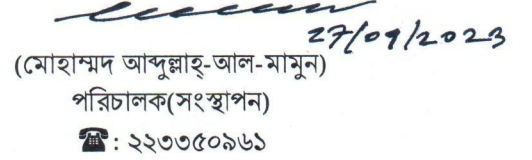 27/09/2023
(মোহাম্মদ আব্দুল্লাহ্-আল-মামুন)
পরিচালক(সংস্থাপন)
☎: ২২৩৩৫০৯৬১